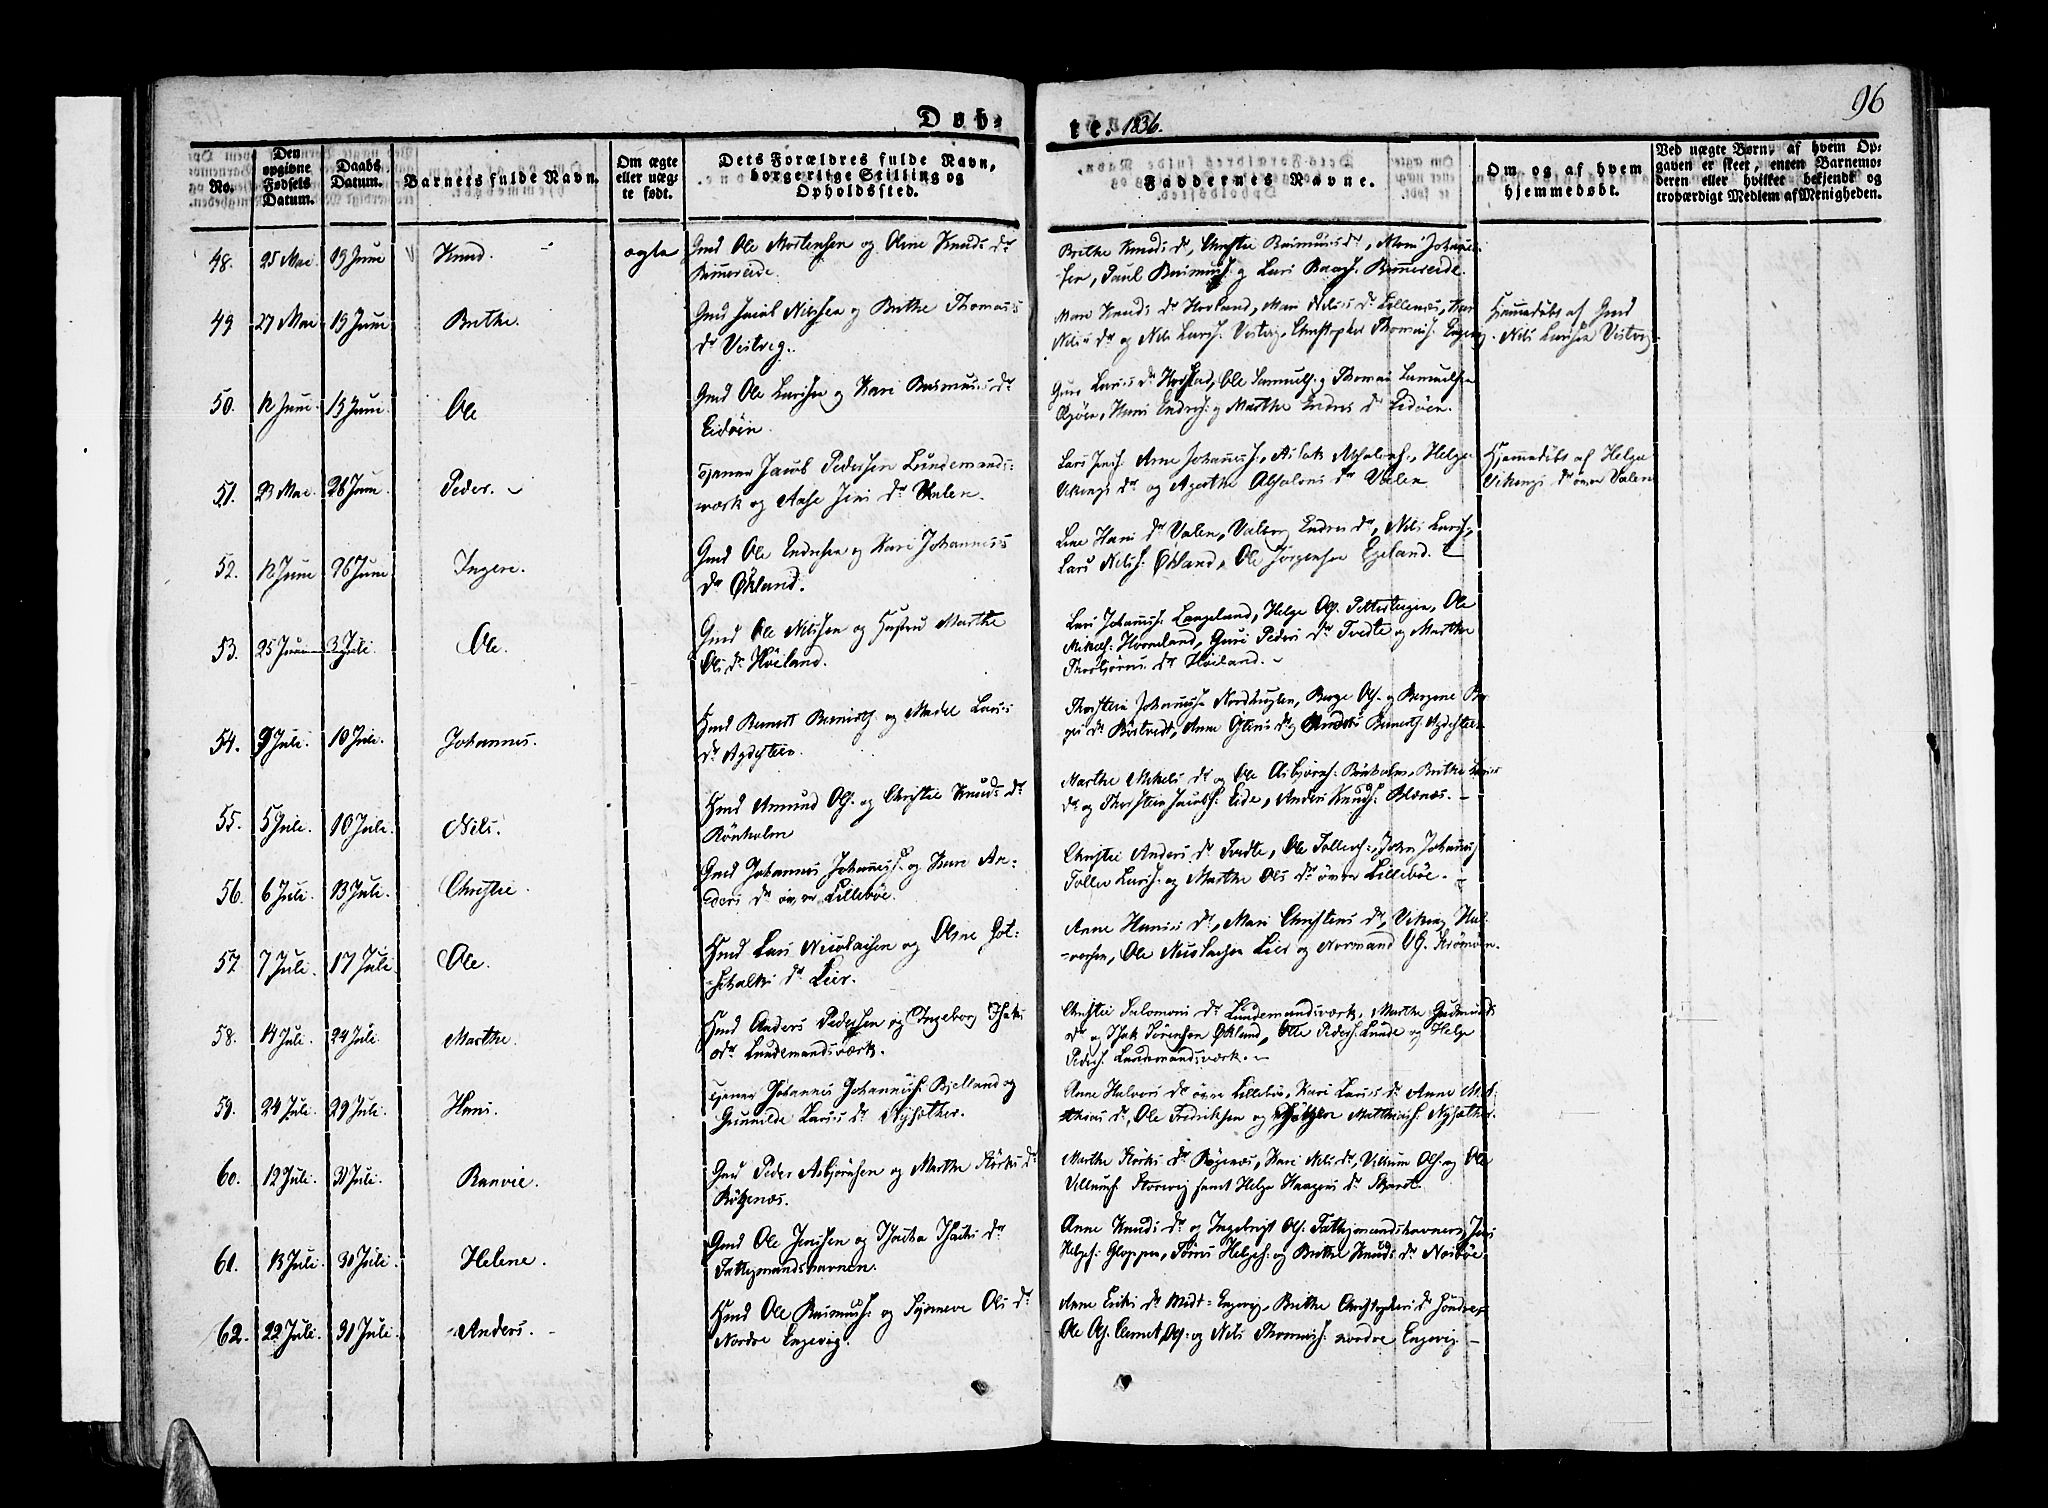 96
Døb-
te. 1836.
No.
Den opgivne Fødsels Datum.
Daabs Datum.
Barnets fulde Navn.
Om ægte eller uægte født.
Dets Forældres fulde Navn, borgerlige Stilling og Opholdssted.
Faddernes Navne.
Om og af hvem hjemmedøbt.
Ved uægte Børn, af hvem Opgaven er skeet, enten Barnemoderen eller hvilket bekjendt og troværdigt Medlem af Menigheden.
48. 25 Mai 19 Juni Knud. ægte Gmd Ole Mortensen og Oline Knuds dr
Rimmereide.
Brithe Knuds dr, Christie Rasmuses dr,
Paul Rasmus. og Lars
49 27 Mai 19 Juni Brithe.
Gmd Jacob Nilssen og Brithe Thomas's
dr Vestvig.
Mari Knuds dr Hovland, Mari Nilses dr Lillenæs,
Nils's dr og Nils Larss. Vestvig, Christopher Thomass. Engevig
Hjemmedøbt af Gmd
Nils Larssen Vestvig
50. 12 Juni 19 Juni Ole
Gmd Ole Larssen og Kari Rasmuses dr
Eidøen.
Ole Samuels. og Thomas Samuelsen
Hans Endres. og Marthe Endres dr Eidøen.
51. 23 Mai 26 Juni Peder.
Tjener Jacob Pedersen Lundemands-
værk og Aase Jens dr Valen.
Lars Jens. Arne Johannes., Aslak Absalons., Helge
Vikings dr og Agathe Absalons dr Valen
Hjemmedøbt af Helge
Vikings dr øvre Valen
52. 12 Juni 26 Juni Ingere.
Gmd Ole Endresen og Kari Johannes's
dr Økland.
Hans dr Valen, Valborg Endres dr, Nils Larss.,
Lars Nils. Økland, Ole Jørgensen Egeland.
53. 25 Juni 3 Juli. Ole.
Gmd Ole Nilssen og Hustru Marthe
Ols dr Høiland.
Lars Johanness. Langeland, Helge Ols. Petterteigen, Ole
Mikels. Horneland, Guri Peders dr Tvedte og Marthe
Thorbjørns dr Høiland.
54. 3 Juli. 10 Juli. Johannes.
Hmd Berent Berents. og Madel Larses
dr Agdestein.
Thorstein Johannessen Nordhuglen, Børge Ols. og
dr Børtvedt, Anne
55. 5 Juli. 10 Juli. Nils.
Hmd Amund Ols. og Christie Knuds dr
Rönholm
Marthe Mikels dr og Ole Asbjørns. Rönholm, Brithe
dr og Thorstein Jacobs. Eide, Anders Knuds. Blænæs.
56. 6 Juli. 13 Juli. Christie.
Gmd Johannes Johanness. og Kari An-
ders dr øvre Lillebøe.
Christie Anders dr Tvedte, Ole Tollevs., John Johannes
Tollev Larss. og Marthe Ols dr øvre Lillebøe.
57 7 Juli. 17 Juli. Ole.
Hmd Lars Nicolaisen og Oline Got-
schalks dr Leir.
Anne Hanses dr, Mari Christens dr, Viking Hal-
vorsen, Ole Nicolaisen Leir og Normand Ols.
58. 14 Juli. 24 Juli. Marthe.
Hmd Anders Pedersen og Ingeborg Isaks
dr Lundemandsværk.
Christie Salomons dr Lundemandsværk, Marthe Gudmunds
dr og Isak Sørensen Økland, Peders. Lunde og Helge
Peders. Lundemandsværk.
59. 24 Juli. 29 Juli. Hans.
Tjener Johannes Johanness. Bjelland og
Gunnilde Larses dr Nysæther.
Anne Halvors dr øvre Lillebøe, Kari Larses dr Anne Mat-
thias dr, Ole Fredriksen og Matthias. Nysæther.
60. 12 Juli. 31 Juli. Ranvie.
Gmd Peder Asbjørnsen og Marthe dr
Nils dr, Villum Ols. og Ole
Villums. Storevig samt Helge Haagens dr
61. 13 Juli. 31 Juli. Helene.
Gmd Ole Jenssen og Isaks dr
Fattigmandshavnen.
Anne Knuds dr og Ingebrigt Ols. Fattigmandshavnen,
Helges. Gloppen, Helges. og Brithe Knuds dr Næsbøe
62. 22 Juli. 31 Juli. Anders.
Hmd Ole Rasmus. og Synneve Ols dr
Nordre Engevig.
Anne Eriks dr Midt-Engevig, Brithe Christophers dr Søndre
Ole Ols. Ols. og Nils Thomas. nordre Engevig